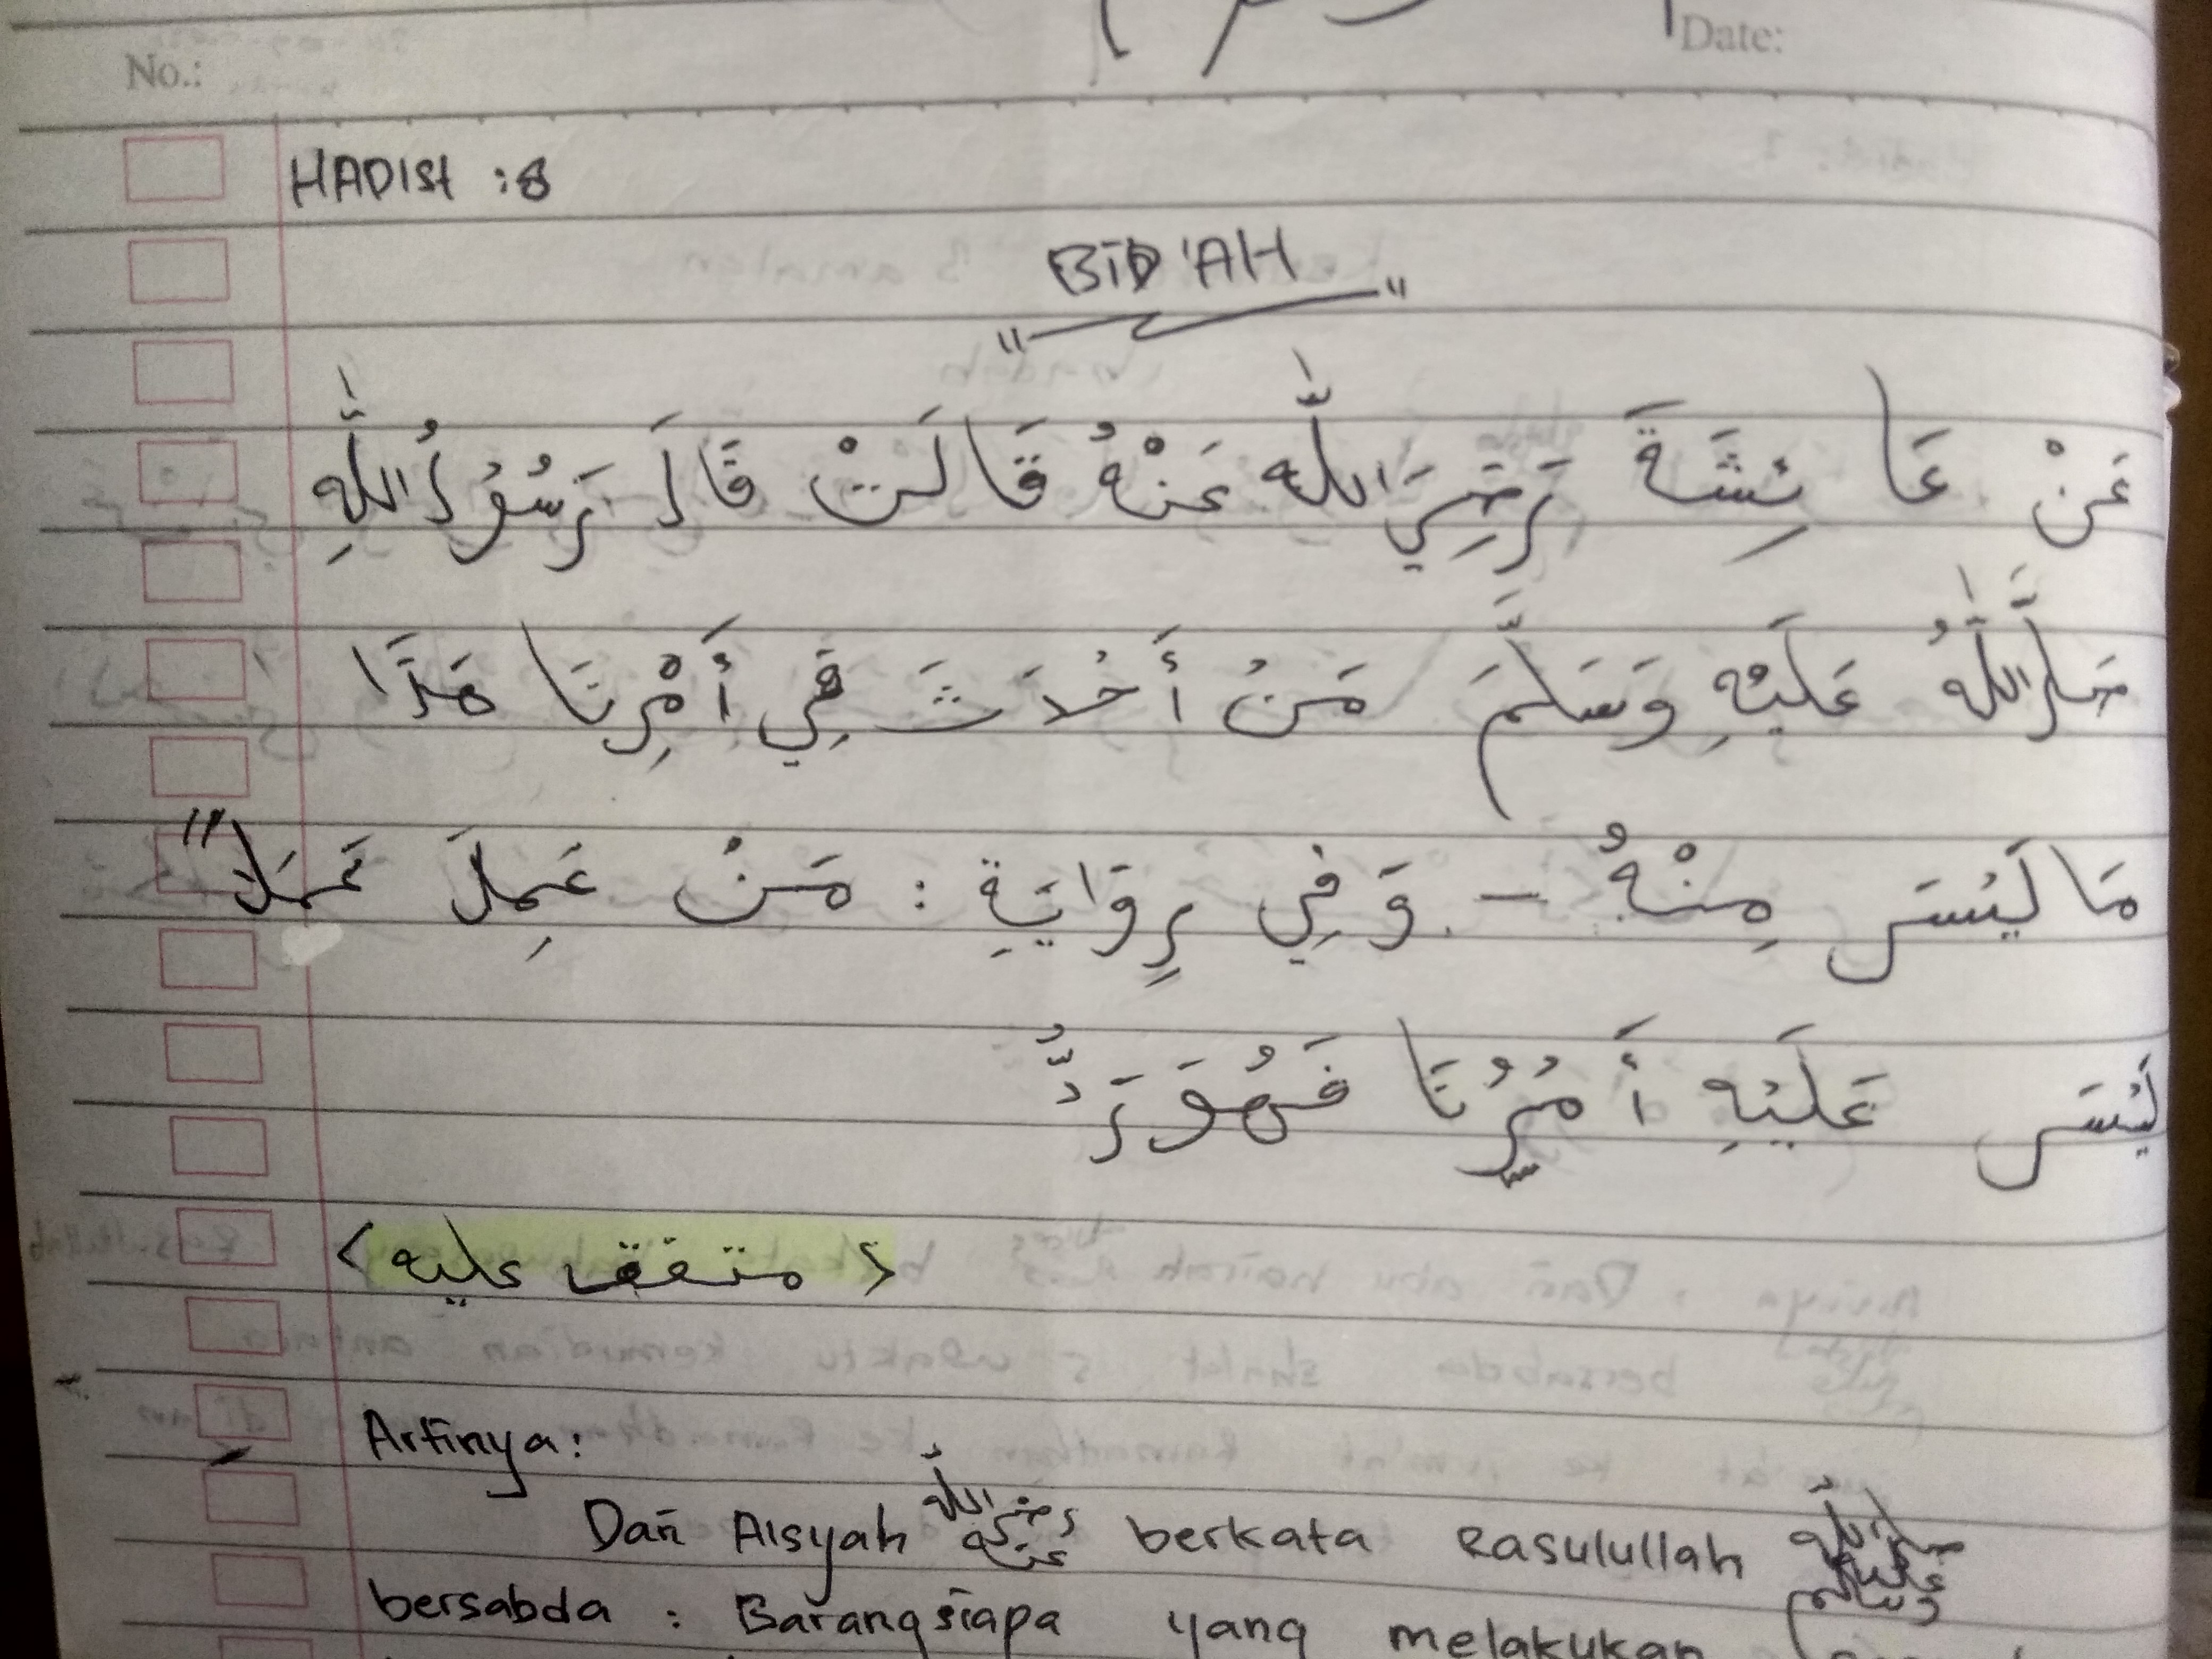 No.:
Date:
HADIST : 8
BID'AH
عَنْ عَائِشَةَ رَضِيَ اللّٰه عَنْهُ قَالَتْ قَالَ رَسُوْلُ اللّٰهِ
صَلَّى اللّٰهُ عَلَيْهِ وَسَلَّمَ مَنْ أَحْدَثَ فِي أَمْرِنَا هَذَا
مَا لَيْسَ مِنْهُ – وَفِي رِوَايَةِ : مَنْ عَمِلَ عَمَلًا
لَيْسَ عَلَيْهِ أَمْرُنَا فَهُوَ رَدٌّ
< متفق عليه >
Artinya :
Dari Aisyah رضي الله عنه berkata Rasulullah صلى الله عليه وسلم
bersabda : Barangsiapa yang melakukan